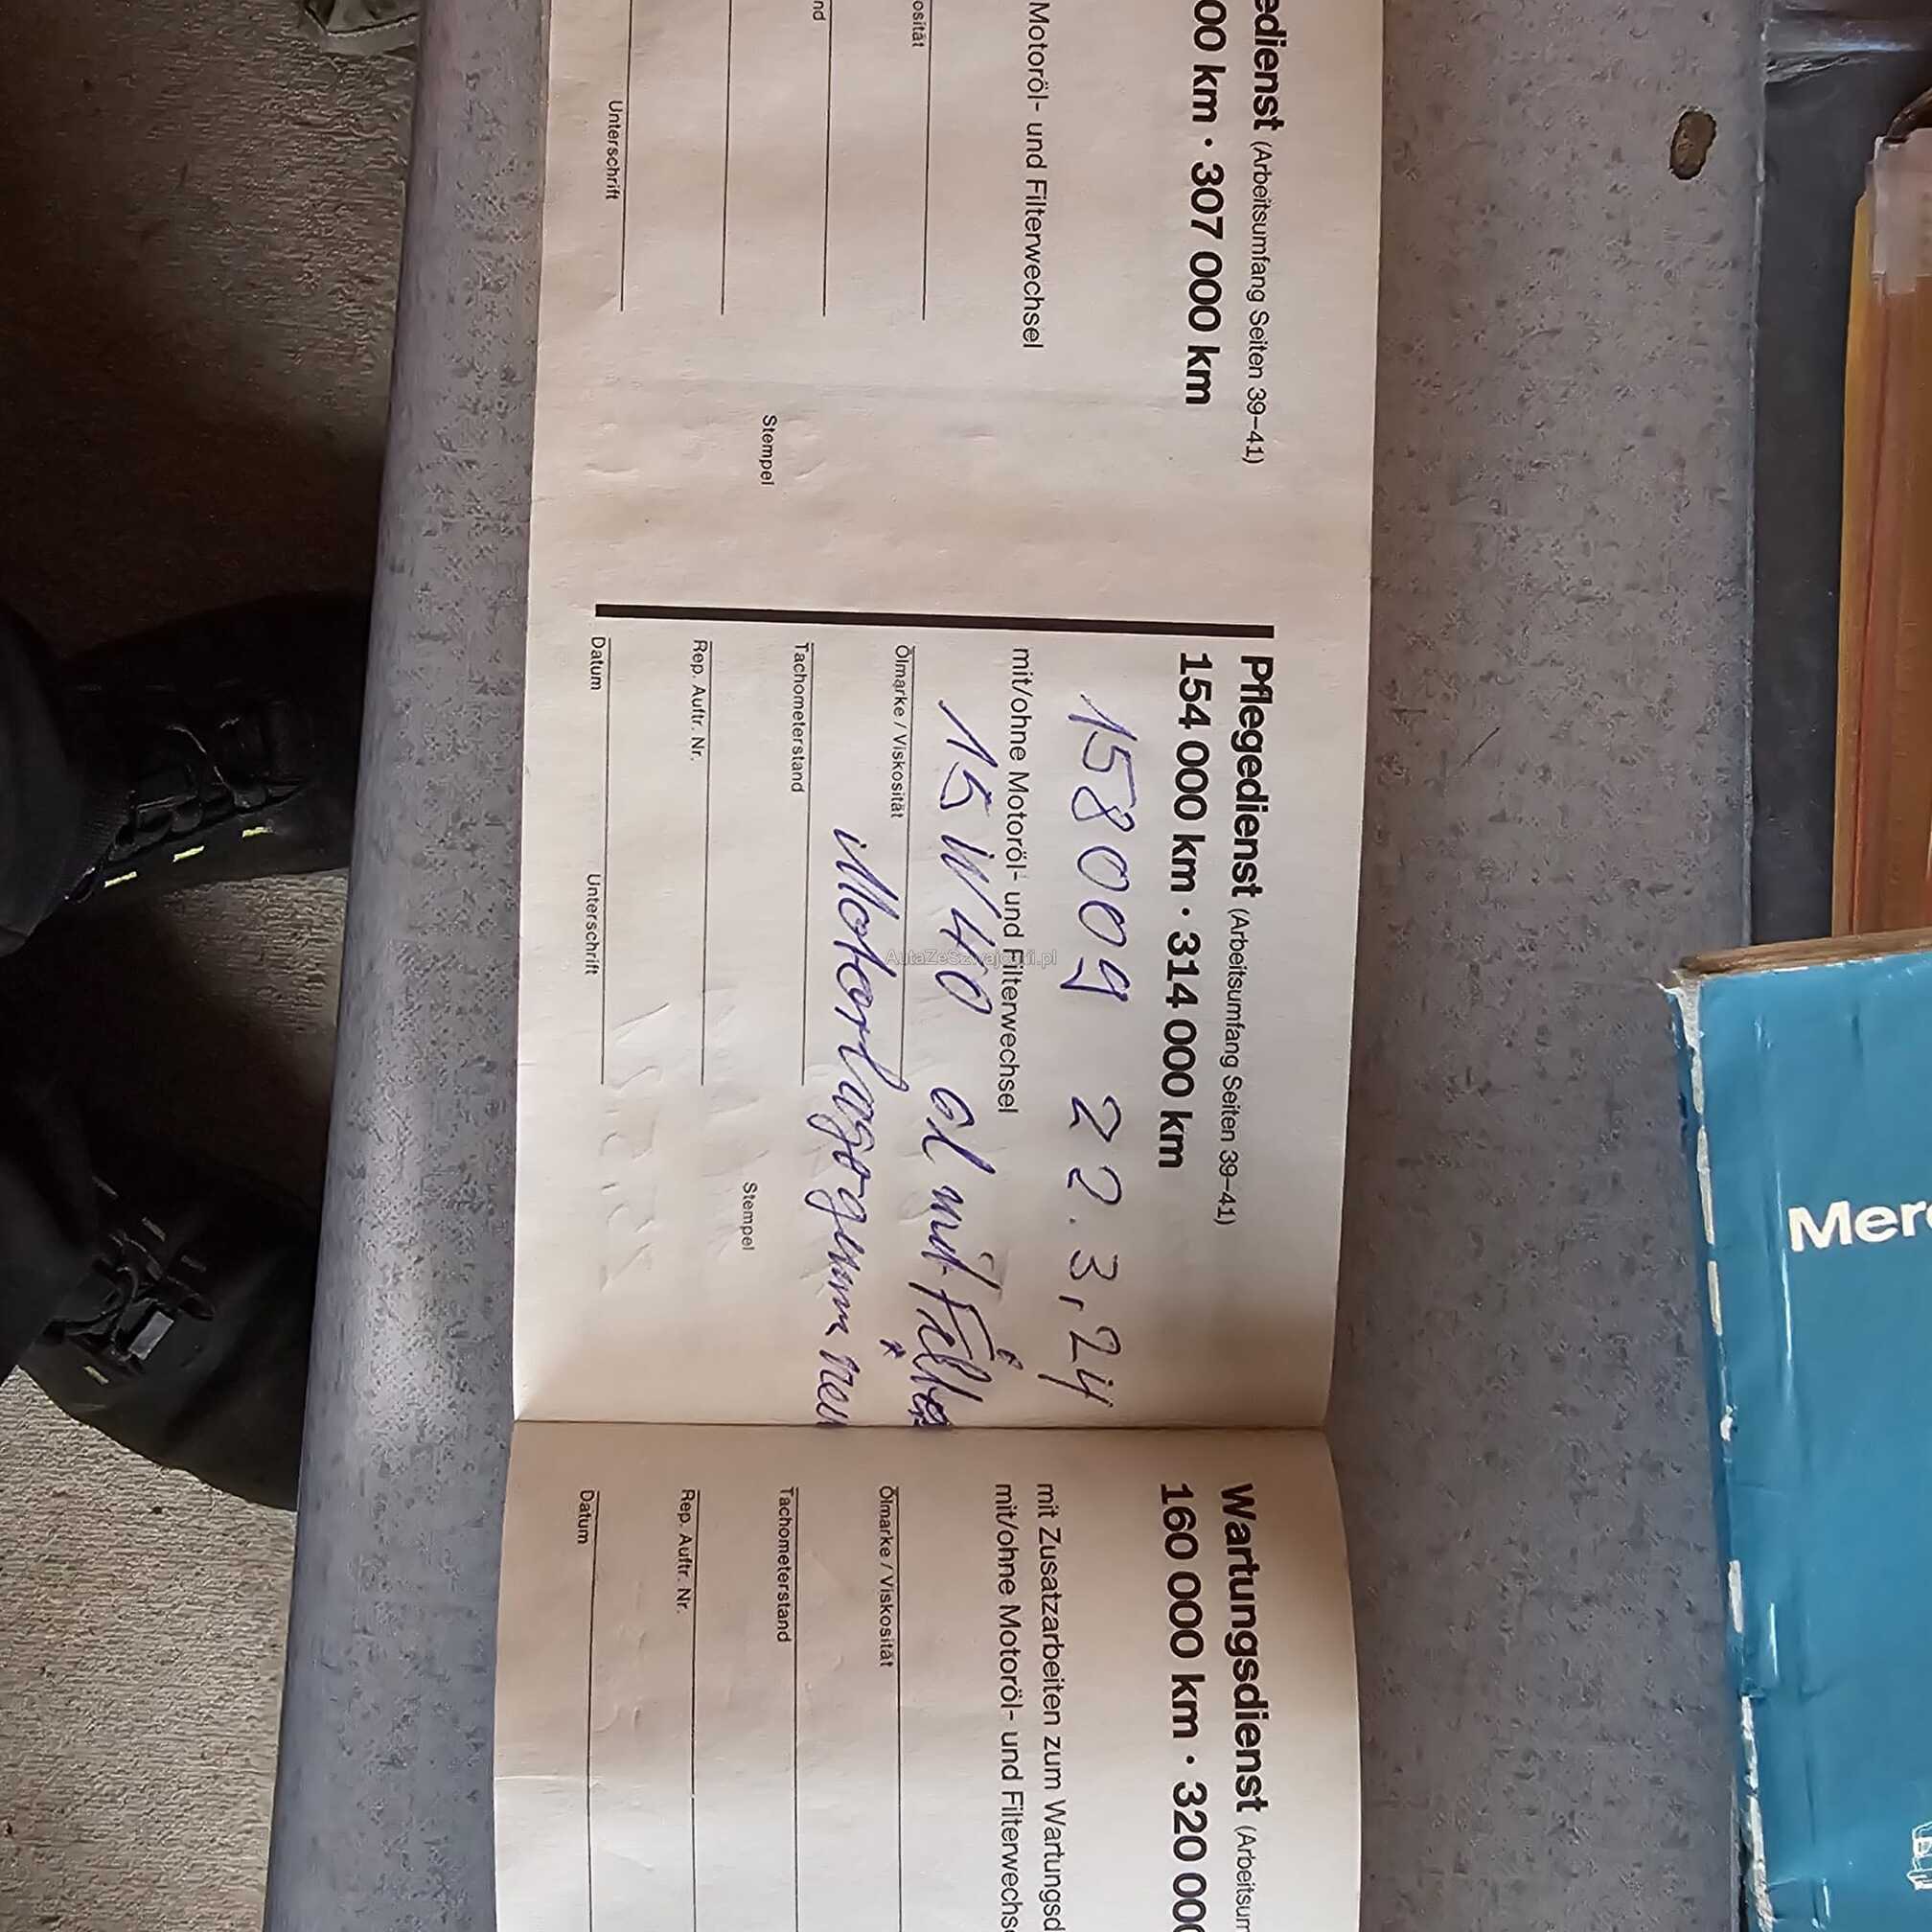 edienst (Arbeitsumfang Seiten 39–41)
00 km · 307 000 km
Motoröl- und Filterwechsel
osität
nd
Unterschrift
Stempel
Pflegedienst (Arbeitsumfang Seiten 39–41)
154 000 km · 314 000 km
158009 22.3.24
mit/ohne Motoröl- und Filterwechsel
15W40 öl mit Filter
Ölmarke / Viskosität
Motorlager vorn neu
Tachometerstand
Rep. Auftr. Nr.
Stempel
Datum
Unterschrift
Wartungsdienst (Arbeitsum
160 000 km · 320 000
mit Zusatzarbeiten zum Wartungsd
mit/ohne Motoröl- und Filterwechs
Ölmarke / Viskosität
Tachometerstand
Rep. Auftr. Nr.
Datum
Merc
AutaZeSzwajcarii.pl